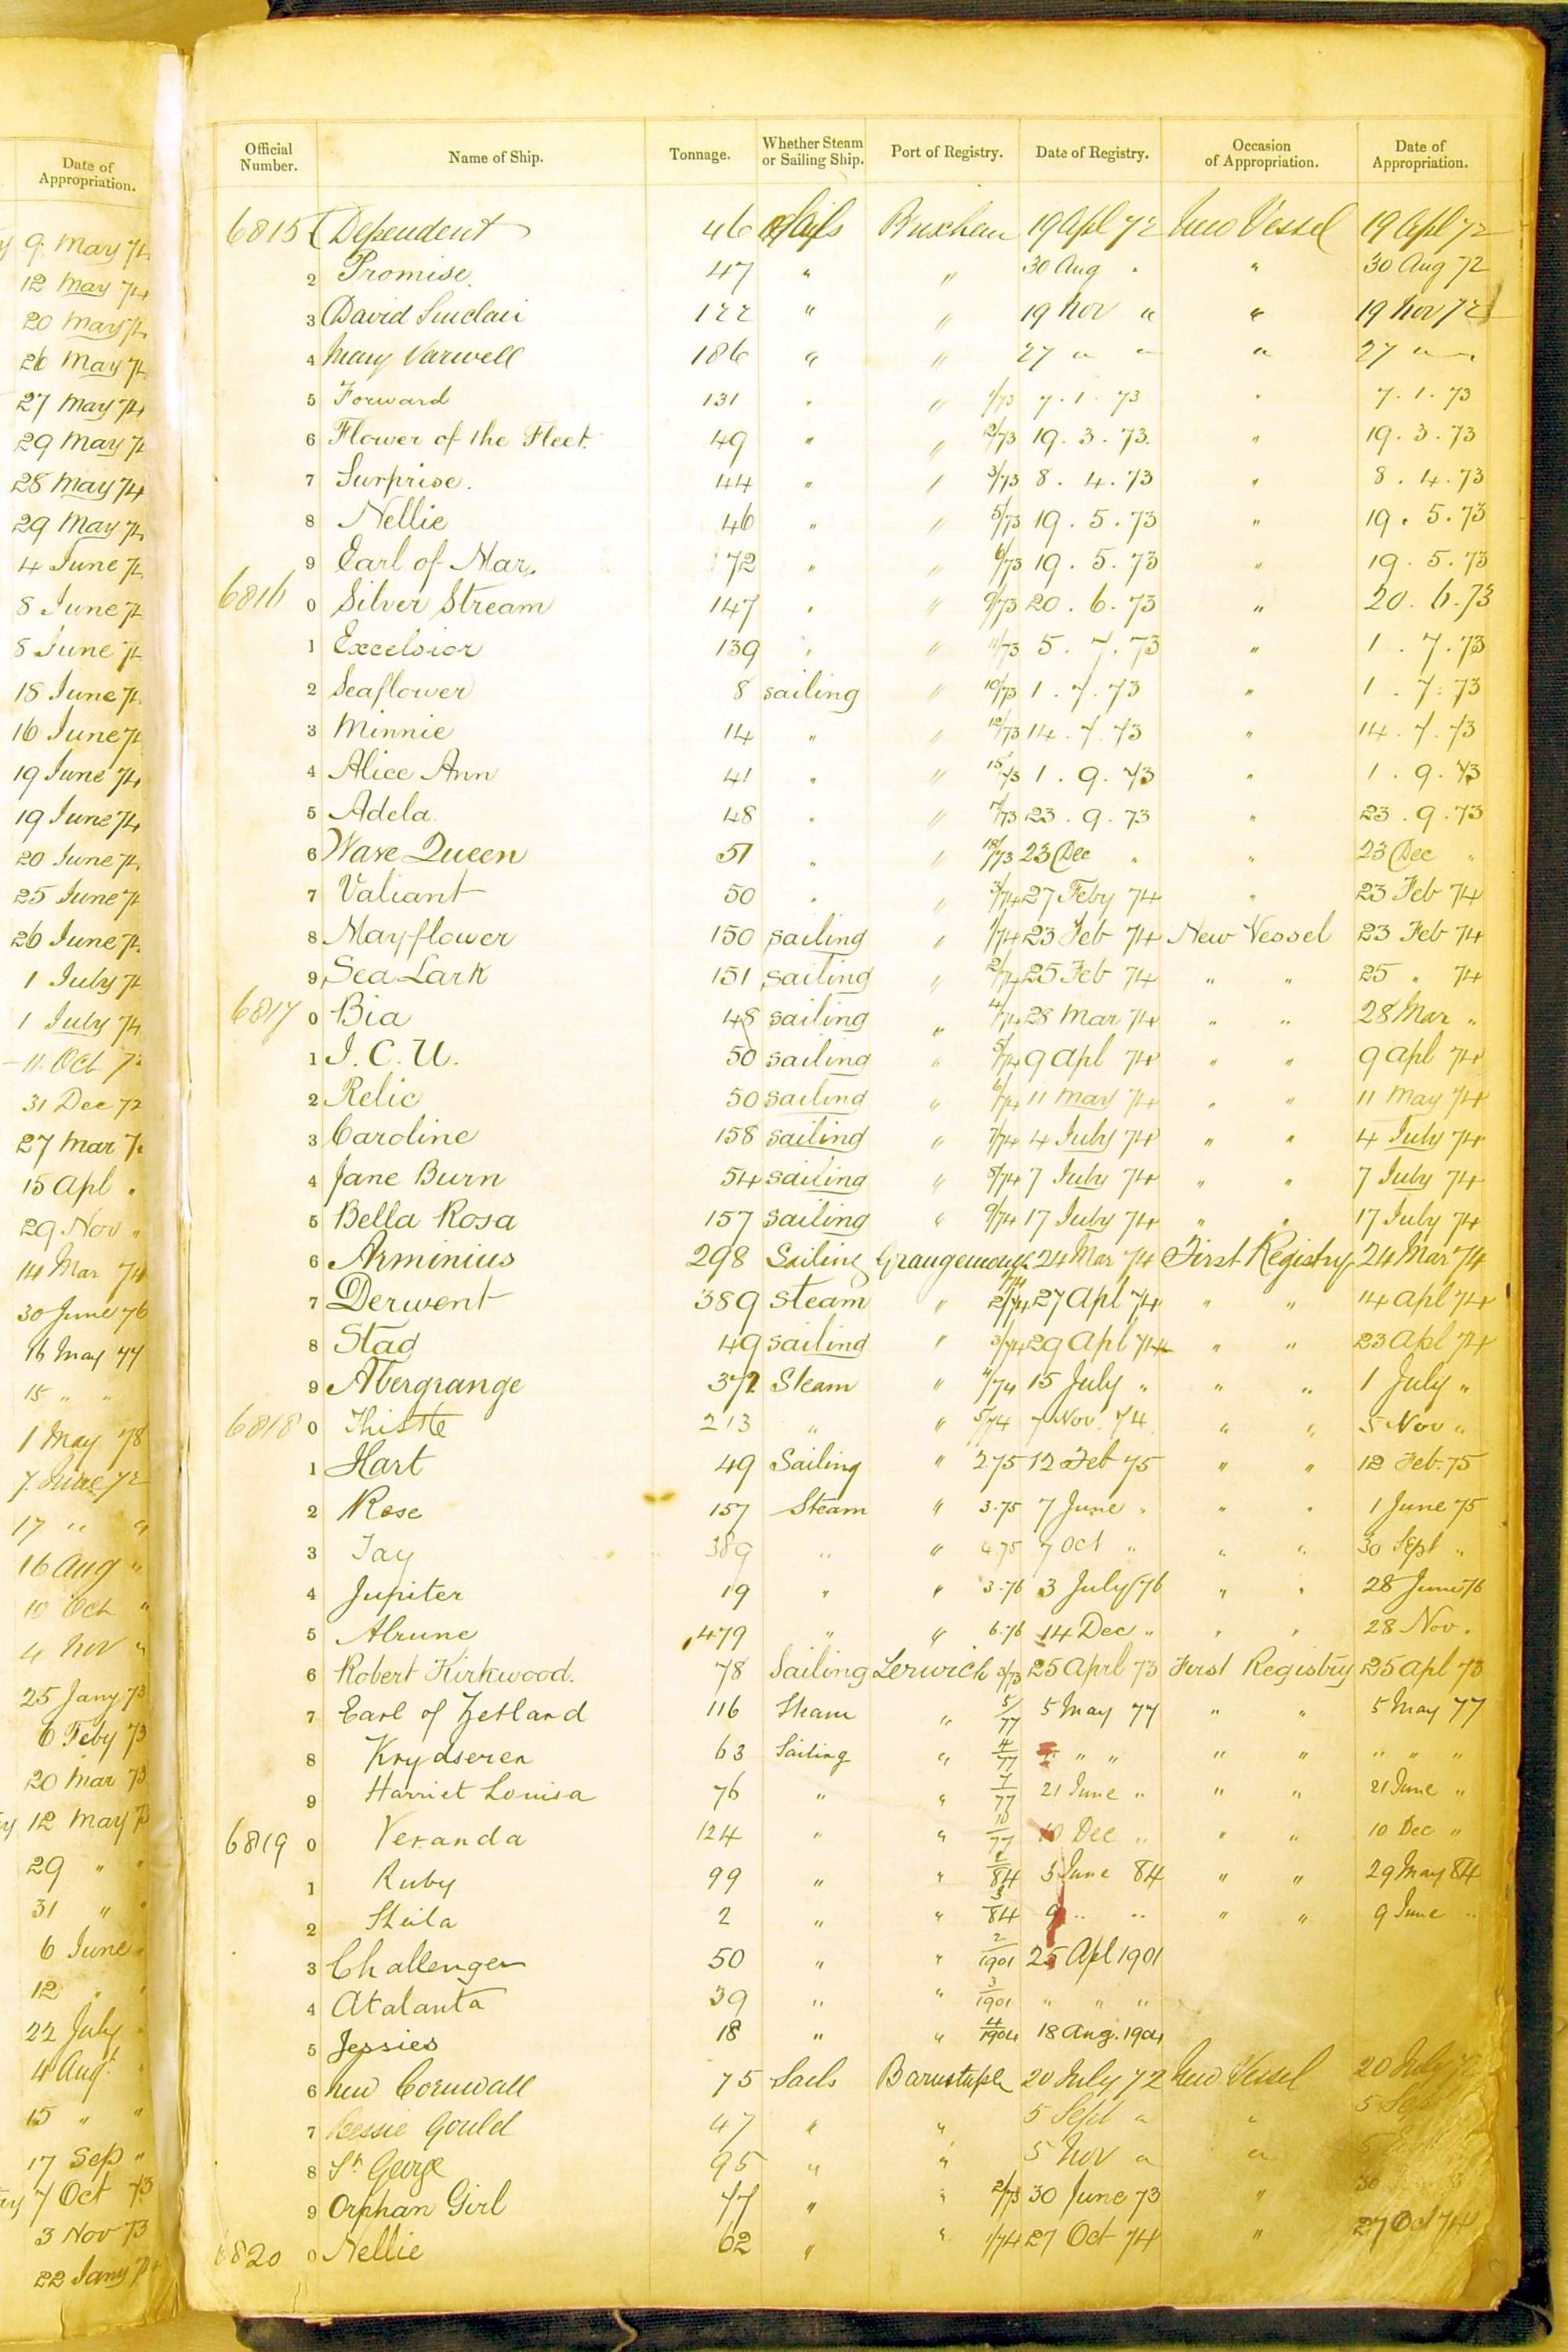 Date of
Appropriation.
9 May 74
12 May 74
20 May 74
26 May 74
27 May 74
29 May 74
28 May 74
29 May 74
4 June 74
8 June 74
8 June 74
18 June 74
16 June 74
19 June 74
19 June 74
20 June 74
25 June 74
26 June 74
1 July 74
1 July 74
11. Oct 7
31 Dec 72
27 Mar 7
15 Apl "
29 Nov "
14 Mar 74
30 June 76
16 May 77
15 " "
1 May 78
7. June 72
17 " "
16 Aug "
10 Oct "
4 Nov "
25 Jany 73
6 Feby 73
20 Mar 73
12 May 73
29 " "
31 " "
6 June "
12 " "
22 July "
4 Augt "
15 " "
17 Sep "
7 Oct 73
3 Nov 73
22 Jany 74
Official Number. Name of Ship. Tonnage. Whether Steam or Sailing Ship. Port of Registry. Date of Registry. Occasion of Appropriation. Date of Appropriation.
6815 Dependent 46 Sails Brixham 19 Apl 72 New Vessel 19 Apl 72
2 Promise. 47 " " 30 Aug " " 30 Aug 72
3 David Sinclair 122 " " 19 Nov " " 19 Nov 72
4 Mary Varwell 186 " " 27 " " " 27 " "
5 Forward 131 " " 1/73 7. 1. 73 " 7. 1. 73
6 Flower of the Fleet. 49 " " 2/73 19. 3. 73. " 19. 3. 73
7 Surprise. 44 " " 3/73 8. 4. 73 " 8. 4. 73
8 Nellie 46 " " 5/73 19. 5. 73 " 19. 5. 73
9 Earl of Mar. 72 " " 6/73 19. 5. 73 " 19. 5. 73
6816 0 Silver Stream 147 " " 9/73 20. 6. 73 " 20. 6. 73
1 Excelsior 139 " " 11/73 5. 7. 73 " 1. 7. 73
2 Seaflower 8 sailing " 10/73 1. 7. 73 " 1. 7. 73
3 Minnie 14 " " 12/73 14. 7. 73 " 14. 7. 73
4 Alice Ann 41 " " 15/73 1. 9. 73 " 1. 9. 73
5 Adela. 48 " " 7/73 23. 9. 73 " 23. 9. 73
6 Wave Queen 51 " " 18/73 23 Dec " " 23 Dec "
7 Valiant 50 " " 3/74 27 Feby 74 " 23 Feb 74
8 Mayflower 150 sailing " 1/74 23 Feb 74 New Vessel 23 Feb 74
9 Sea Lark 151 sailing " 2/74 25 Feb 74 " " 25 " 74
6817 0 Bia 48 sailing " 4/74 28 Mar 74 " " 28 Mar "
1 I. C. U. 50 sailing " 5/74 9 Apl 74 " " 9 Apl 74
2 Relic 50 sailing " 6/74 11 May 74 " " 11 May 74
3 Caroline 158 sailing " 7/74 4 July 74 " " 4 July 74
4 Jane Burn 54 sailing " 8/74 7 July 74 " " 7 July 74
5 Bella Rosa 157 sailing " 9/74 17 July 74 " " 17 July 74
6 Arminius 298 Sailing Grangemouth 24 Mar 74 First Registry 24 Mar 74
7 Derwent 389 steam " 2/74 27 Apl 74 " " 14 Apl 74
8 Stag 49 sailing " 3/74 29 Apl 74 " " 23 Apl 74
9 Abergrange 372 Steam " 4/74 15 July " " " 1 July "
6818 0 Thistle 213 " " 5/74 7 Nov. 74 " " 5 Nov "
1 Hart 49 Sailing " 2.75 12 Feb 75 " " 12 Feb. 75
2 Rose 157 Steam " 3.75 7 June " " " 1 June 75
3 Tay 389 " " 4.75 7 Oct " " " 30 Sept "
4 Jupiter 19 " " 3.76 3 July 76 " " 28 June 76
5 Alrune 479 " " 6.76 14 Dec " " " 28 Nov.
6 Robert Kirkwood. 78 Sailing Lerwick 3/73 25 Aprl 73 First Registry 25 Apl 73
7 Earl of Zetland 116 Steam " 5/77 5 May 77 " " 5 May 77
8 Krydseren 63 Sailing " 4/77 " " " " " " "
9 Harriet Louisa 76 " " 7/77 21 June " " " 21 June "
6819 0 Veranda 124 " " 10/77 10 Dec " " " 10 Dec "
1 Ruby 99 " " 2/84 3 June 84 " " 29 May 84
2 Sheila 2 " " 3/84 9 " " " " 9 June "
3 Challenger 50 " " 2/1901 25 Apl 1901
4 Atalanta 39 " " 3/1901 " " "
5 Jessies 18 " " 4/1904 18 Aug. 1904
6 New Cornwall 75 Sails Barnstaple 20 July 72 New Vessel 20 July 72
7 Bessie Gould 47 " " 5 Sept " " 5 Sep
8 St. George 95 " " 5 Nov " "
9 Orphan Girl 77 " " 2/73 30 June 73 " 30
6820 0 Nellie 62 " " 1/74 27 Oct 74 " 27 Oct 74